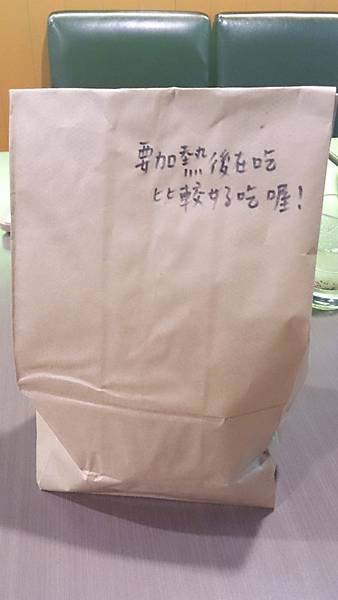 要加熱後在吃
比較好吃喔!